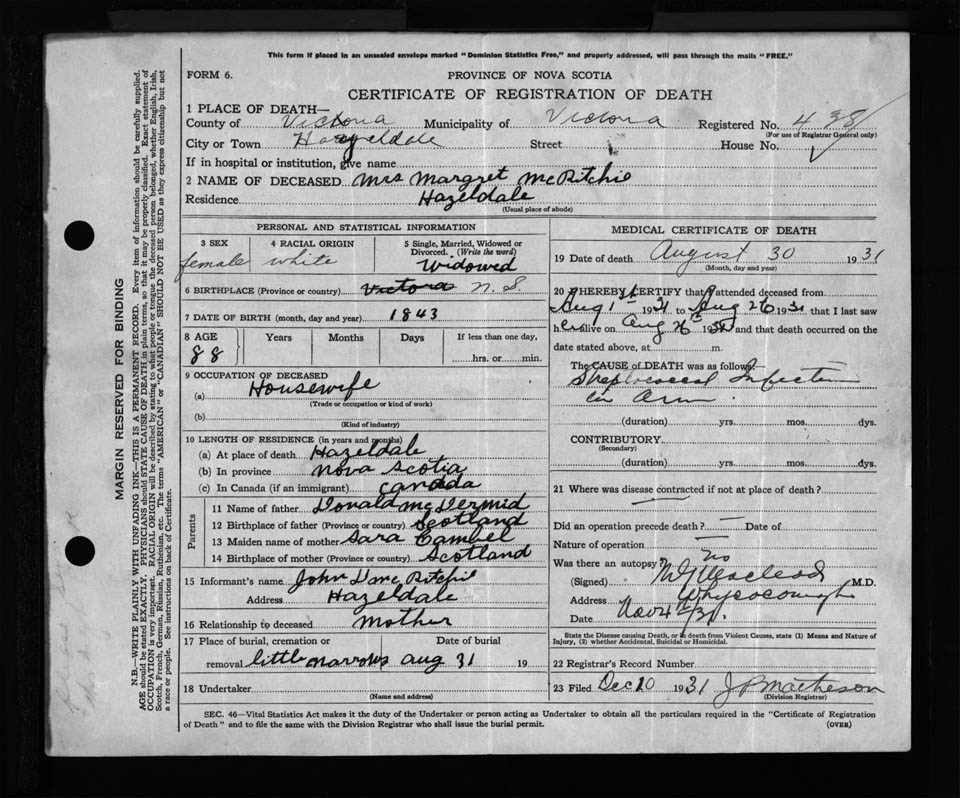 This form if placed in an unsealed envelope marked "Dominion Statistics Free," and properly addressed, will pass through the mails "FREE."
FORM 6.
PROVINCE OF NOVA SCOTIA
CERTIFICATE OF REGISTRATION OF DEATH
1 PLACE OF DEATH—
County of Victoria Municipality of Victoria Registered No. 438
(For use of Registrar General only)
City or Town Hazeldale Street House No.
If in hospital or institution, give name
2 NAME OF DECEASED Mrs Margret McRitchie
Residence Hazeldale
(Usual place of abode)
PERSONAL AND STATISTICAL INFORMATION
3 SEX female
4 RACIAL ORIGIN white
5 Single, Married, Widowed or Divorced. (Write the word) Widowed
6 BIRTHPLACE (Province or country) Victoria N. S.
7 DATE OF BIRTH (month, day and year) 1843
8 AGE Years Months Days If less than one day,
88 hrs. or min.
9 OCCUPATION OF DECEASED
(a) Housewife
(Trade or occupation or kind of work)
(b)
(Kind of industry)
10 LENGTH OF RESIDENCE (in years and months)
(a) At place of death Hazeldale
(b) In province Nova Scotia
(c) In Canada (if an immigrant) Canada
Parents
11 Name of father Donald McDermid
12 Birthplace of father (Province or country) Scotland
13 Maiden name of mother Sara Cambel
14 Birthplace of mother (Province or country) Scotland
15 Informant's name John D McRitchie
Address Hazeldale
16 Relationship to deceased Mother
17 Place of burial, cremation or Date of burial
removal little narrows aug 31 19
18 Undertaker
(Name and address)
MEDICAL CERTIFICATE OF DEATH
19 Date of death August 30 1931
(Month, day and year)
20 I HEREBY CERTIFY that I attended deceased from
Aug 1st 1931 to Aug 26 1931 that I last saw
her alive on Aug 26th 1931 and that death occurred on the
date stated above, at m.
The CAUSE OF DEATH was as follows:
Streptococcal Infection
in arm.
(duration) yrs. mos. dys.
CONTRIBUTORY
(Secondary)
(duration) yrs. mos. dys.
21 Where was disease contracted if not at place of death?
Did an operation precede death? — Date of
Nature of operation —
Was there an autopsy? no
(Signed) MacLeod M.D.
Address Whycocomagh
Date Nov 4th /31.
State the Disease causing Death, or in death from Violent Causes, state (1) Means and Nature of
Injury, (2) whether Accidental, Suicidal or Homicidal.
22 Registrar's Record Number
23 Filed Dec 10 1931 J P Matheson
(Division Registrar)
SEC. 46—Vital Statistics Act makes it the duty of the Undertaker or person acting as Undertaker to obtain all the particulars required in the "Certificate of Registration
of Death" and to file the same with the Division Registrar who shall issue the burial permit.
(OVER)
MARGIN RESERVED FOR BINDING
N.B.—WRITE PLAINLY WITH UNFADING INK—THIS IS A PERMANENT RECORD. Every item of information should be carefully supplied.
AGE should be stated EXACTLY. PHYSICIANS should STATE CAUSE OF DEATH in plain terms, so that it may be properly classified. Exact statement of
OCCUPATION is very important. RACIAL ORIGIN will be described by stating to what people or tongue the deceased person belonged, whether English, Irish,
Scotch, French, German, Russian, Ruthenian, etc. The terms "AMERICAN" or "CANADIAN" SHOULD NOT BE USED as they express citizenship but not
a race or people. See instructions on back of Certificate.